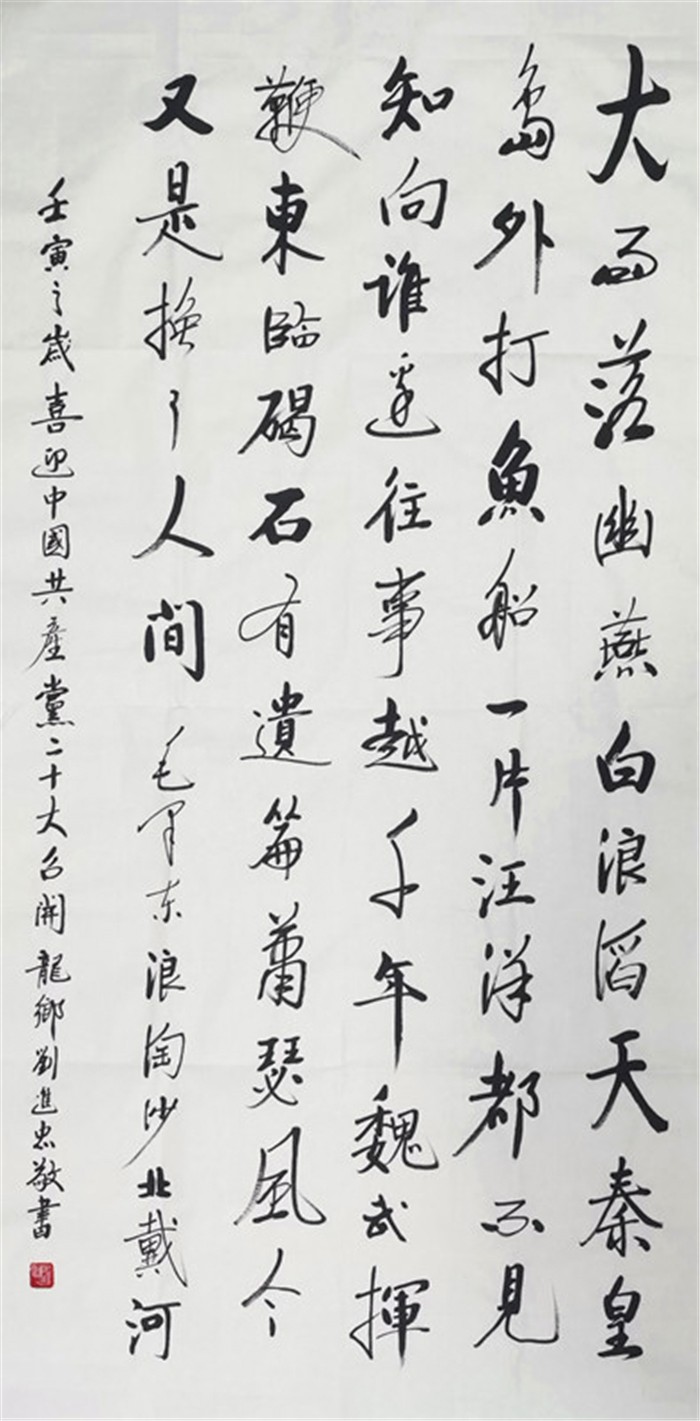 大雨落幽燕白浪滔天秦皇
島外打魚船一片汪洋都不見
知向誰邊往事越千年魏武揮
鞭東臨碣石有遺篇蕭瑟風今
又是換了人間 毛澤东浪淘沙北戴河
壬寅之歲喜迎中國共產黨二十大召開龍鄉劉進忠敬書